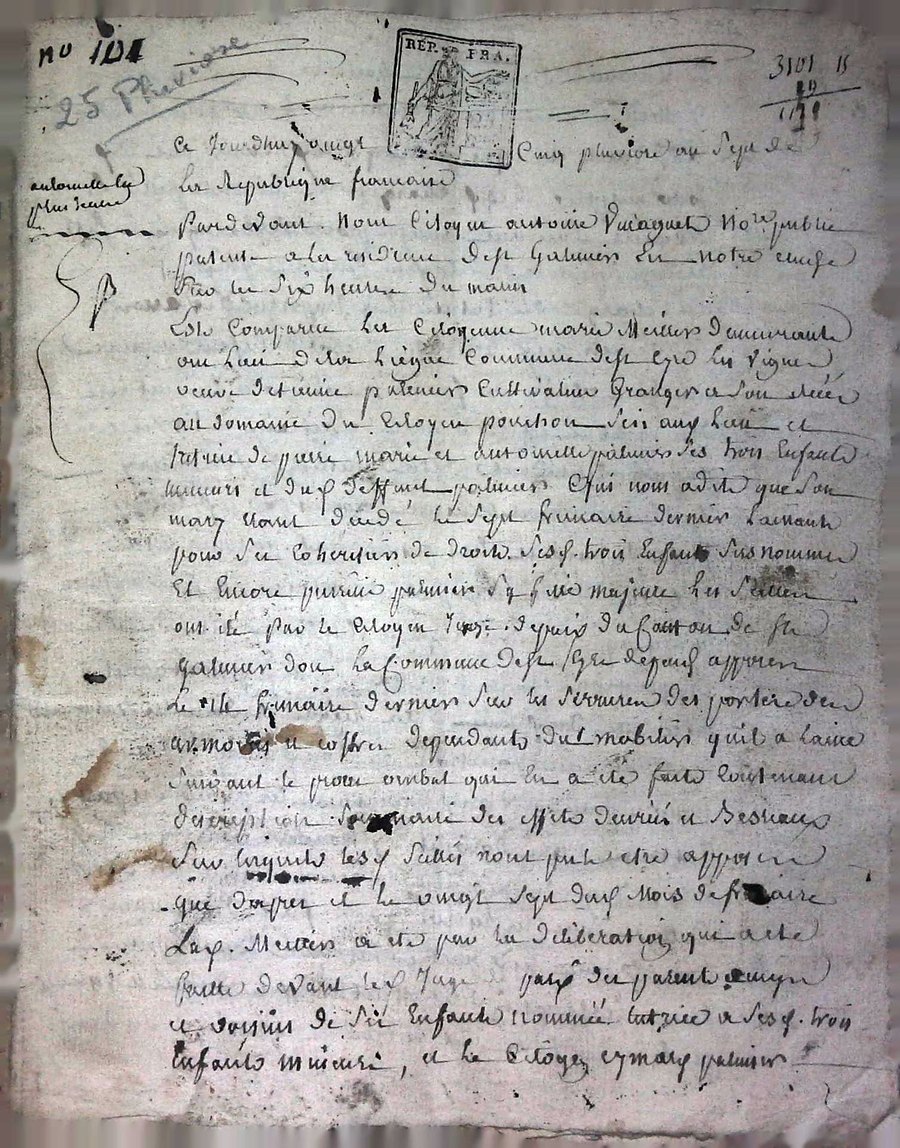 no 101
25 Pluviose
REP. FRA.
3101 15
Ce Jourdhuy vingt Cinq pluviose an Sept de
La Republique francaise
antoinette la
plus jeune
Pardevant Nous Citoyen antoine No.re public
patenté a la residence de st Galmier En notre etude
Sur les Six heures du matin
Est Comparue La Citoyenne marie Meiller demeurante
au Lieu de la Liegue Commune de st Cyr les Vignes
veuve detienne palmier Cultivateur Granger a Son décès
au domaine du Citoyen ponchon Sis aux Lieu et
tutrice de pierre marie et antoinette palmier Ses trois Enfants
mineurs et dud deffunt palmier Qui nous a dit que Son
mary étant décédé le Sept frimaire dernier Laissant
pour Ses Coheritiers de droit Sesd. trois Enfants Susnommés
Et Encore palmier Sa fille majeure Les Scellés
ont été par le Citoyen Juge de paix du Canton de st
Galmier dou La Commune de st Cyr depend apposés
Le frimaire dernier Sur les Serrures des portes des
armoires et coffres dependants du mobilier quil a Laissé
Suivant le proces verbal qui En a été faite Contenant
description Sommaire des effets denrées et Bestiaux
Sur lesquels lesd Scellés nont peut etre apposés
que dapres et le vingt Sept dud Mois de frimaire
Lad. Meiller a été par la deliberation qui a eté
faitte devant led Juge paix des parents amis
et voisins de Ses Enfants nommée tutrice a Sesd. trois
Enfants mineurs, et le Citoyen palmier